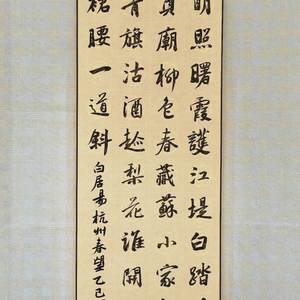 明照曙霞護江堤白踏
員廟柳色春藏蘇小家
青旗沽酒趂梨花誰開
裙腰一道斜
白居易杭州春望乙巳